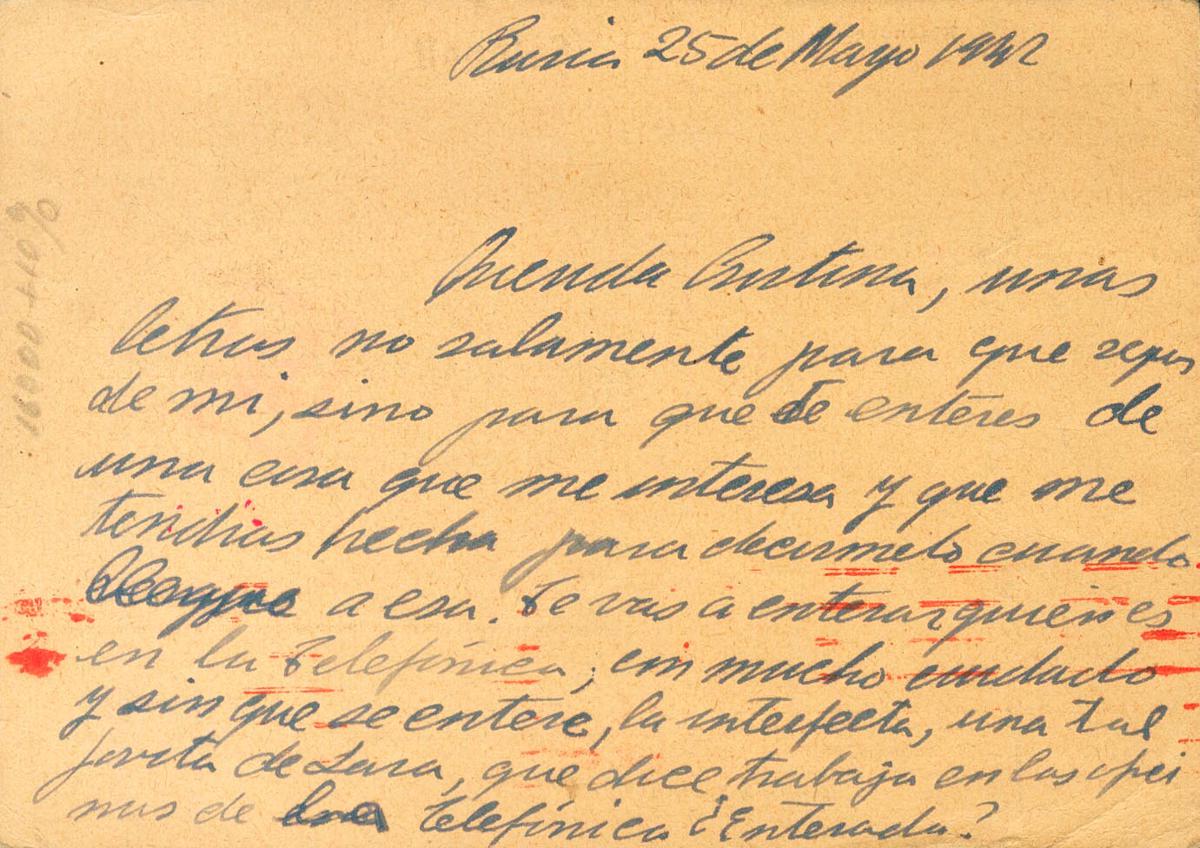 Rusia 25 de Mayo 1942
Querida Cristina, unas
letras no solamente para que sepas
de mi, sino para que te enteres de
una cosa que me interesa y que me
tendras hecha para decirmelo cuando
llegue a esa. Te vas a enterar quien es
en la Telefínica, con mucho cuidado
y sin que se entere, la interfecta, una tal
de Lara, que dice trabaja en las ofici
nas de la telefínica ¿Enterada?
16000 + 10%